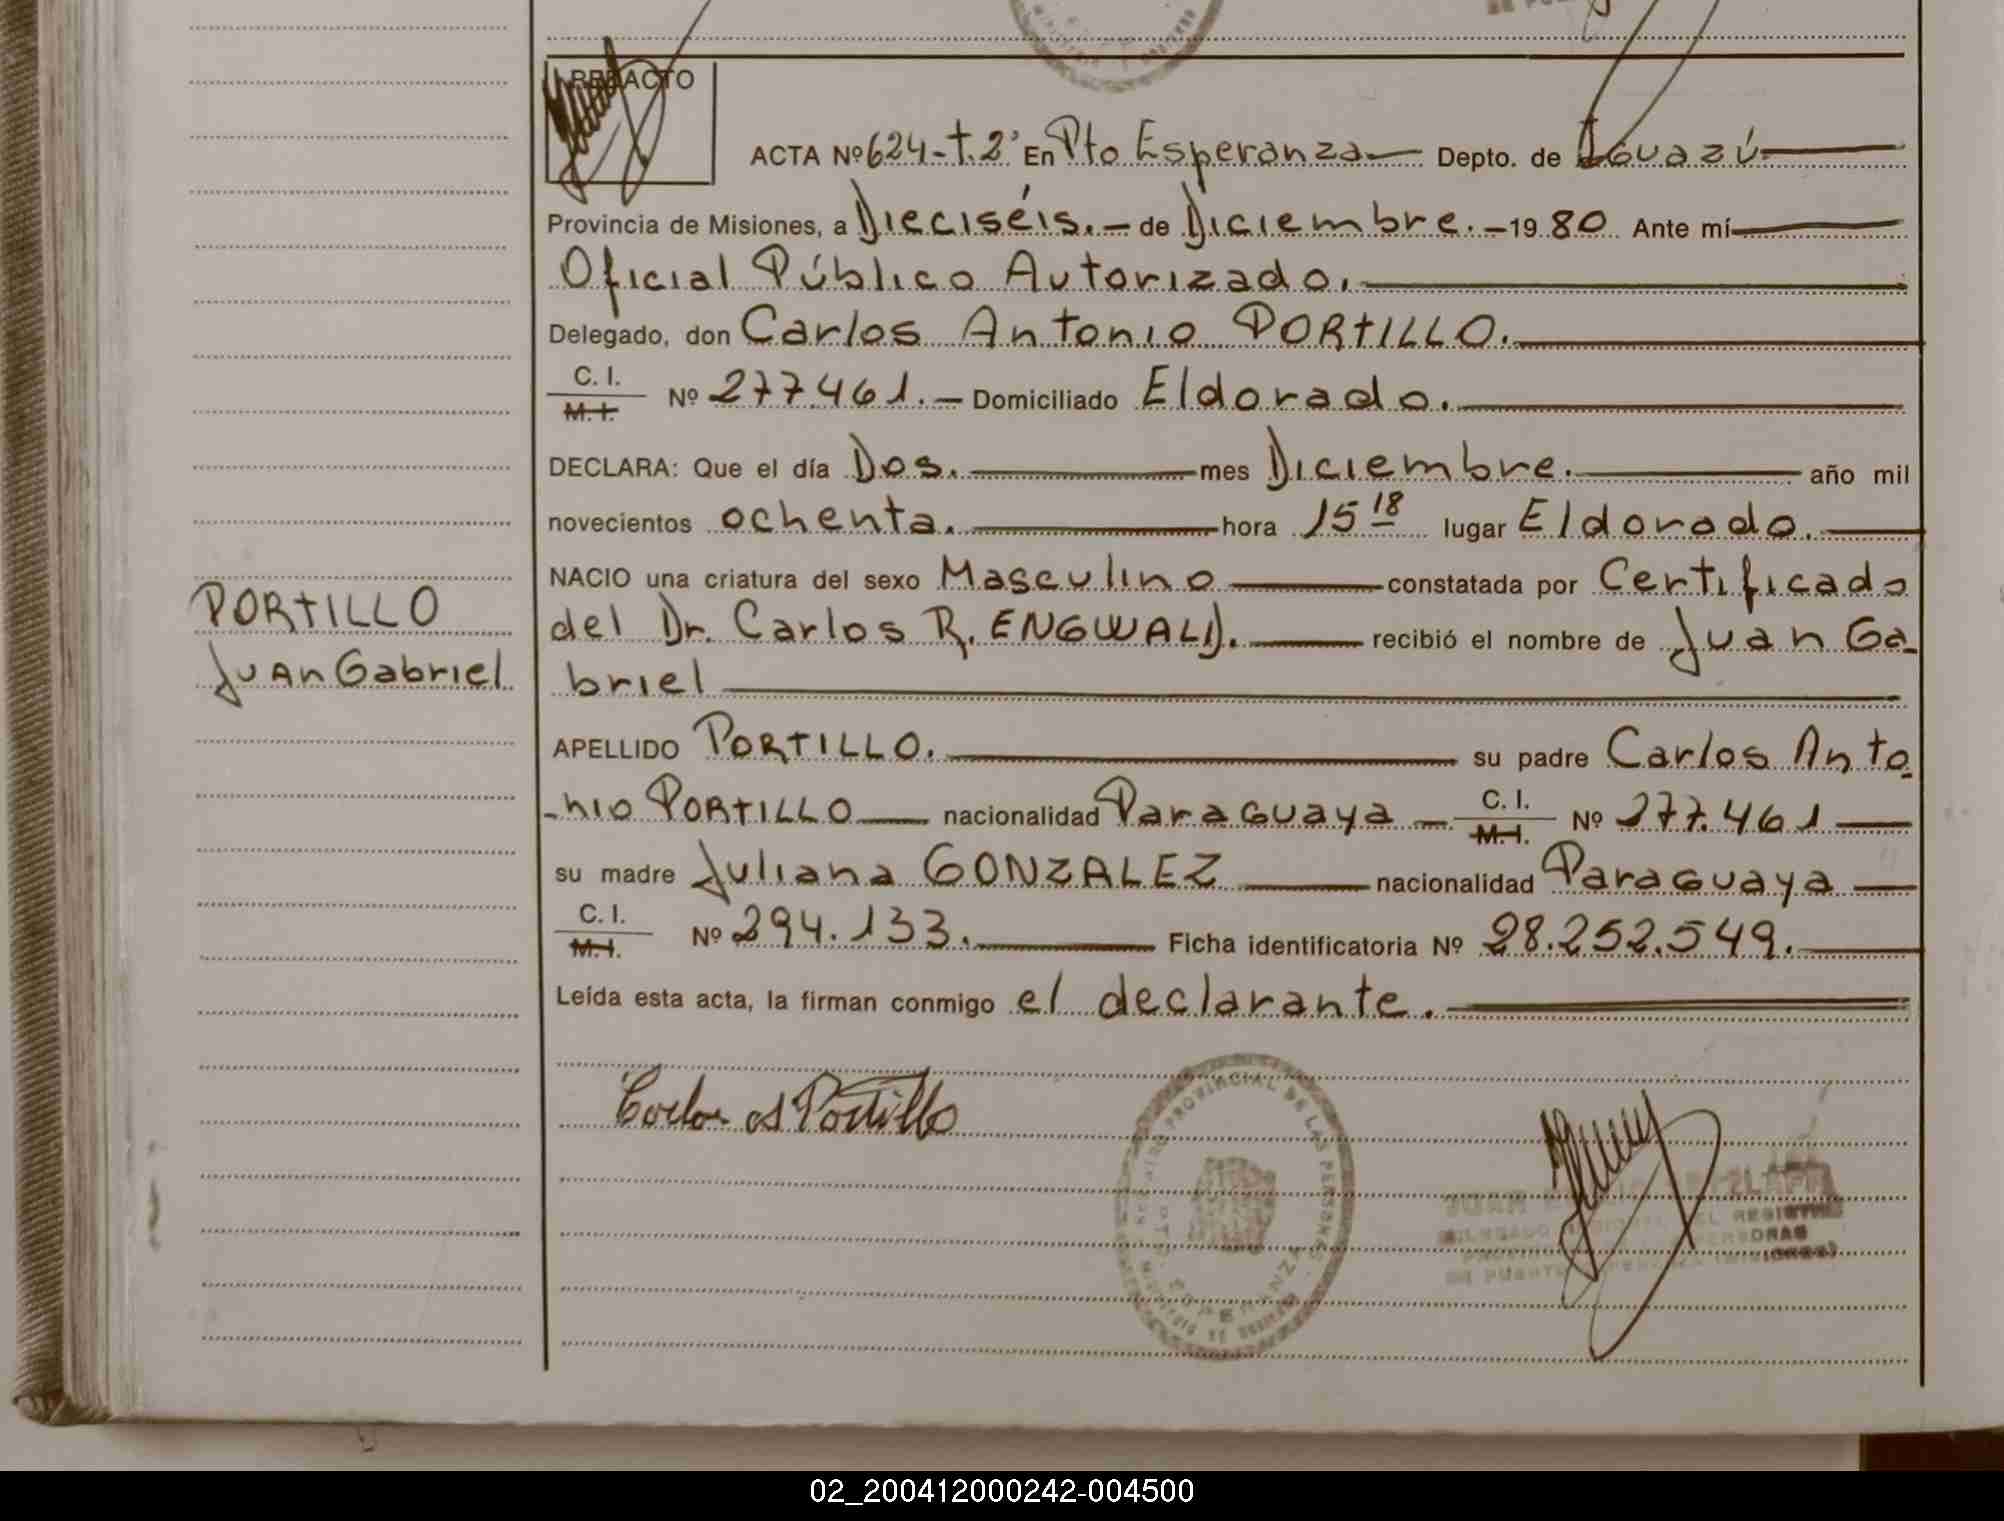 REDACTO
ACTA Nº 624-t.2º En Pto Esperanza Depto. de Iguazú
Provincia de Misiones, a Dieciséis.- de Diciembre.- 19 80 Ante mí
Oficial Público Autorizado.
Delegado, don Carlos Antonio PORTILLO.
C. I.
M. I. Nº 277.461.- Domiciliado Eldorado.
DECLARA: Que el día Dos. mes Diciembre. año mil
novecientos ochenta. hora 15 18 lugar Eldorado.
NACIO una criatura del sexo Masculino constatada por Certificado
del Dr. Carlos R. ENGWALD. recibió el nombre de Juan Ga-
briel
PORTILLO
Juan Gabriel
APELLIDO PORTILLO. su padre Carlos Anto
-nio PORTILLO nacionalidad Paraguaya - C. I. M. I. Nº 277.461
su madre Juliana GONZALEZ nacionalidad Paraguaya
C. I.
M. I. Nº 294.133. Ficha identificatoria Nº 28.252.549.
Leída esta acta, la firman conmigo el declarante.
Portillo
PROVINCIAL DE LAS PERSONAS
ESPERANZA
JUAN
REGISTRO
PERSONAS
DE PUERTO
02_200412000242-004500